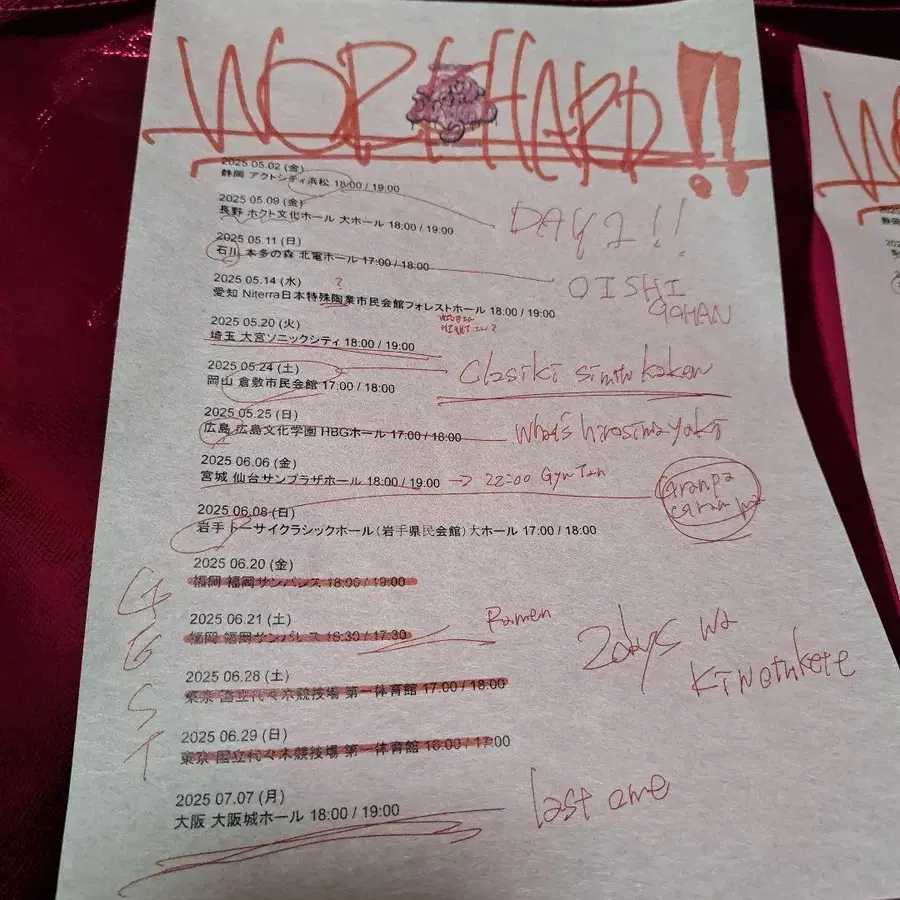 WORK HARD!!
2025 05.02 (金)
静岡 アクトシティ浜松 18:00 / 19:00
2025 05.09 (金)
長野 ホクト文化ホール 大ホール 18:00 / 19:00
DAY 1!!
2025 05.11 (日)
石川 本多の森 北電ホール 17:00 / 18:00
OISHI
GOHAN
2025 05.14 (水) ?
愛知 Niterra日本特殊陶業市民会館フォレストホール 18:00 / 19:00
2025 05.20 (火)
埼玉 大宮ソニックシティ 18:00 / 19:00
2025 05.24 (土)
岡山 倉敷市民会館 17:00 / 18:00
2025 05.25 (日)
広島 広島文化学園 HBGホール 17:00 / 18:00
what's hirosima yaki
2025 06.06 (金)
宮城 仙台サンプラザホール 18:00 / 19:00 → 22:00 Gyu Tan
2025 06.08 (日)
岩手 トーサイクラシックホール(岩手県民会館)大ホール 17:00 / 18:00
2025 06.20 (金)
福岡 福岡サンパレス 18:00 / 19:00
2025 06.21 (土)
福岡 福岡サンパレス 16:30 / 17:30
Ramen
2days wa
kiwotukete
2025 06.28 (土)
東京 国立代々木競技場 第一体育館 17:00 / 18:00
2025 06.29 (日)
東京 国立代々木競技場 第一体育館 16:00 / 17:00
2025 07.07 (月)
大阪 大阪城ホール 18:00 / 19:00
last ome